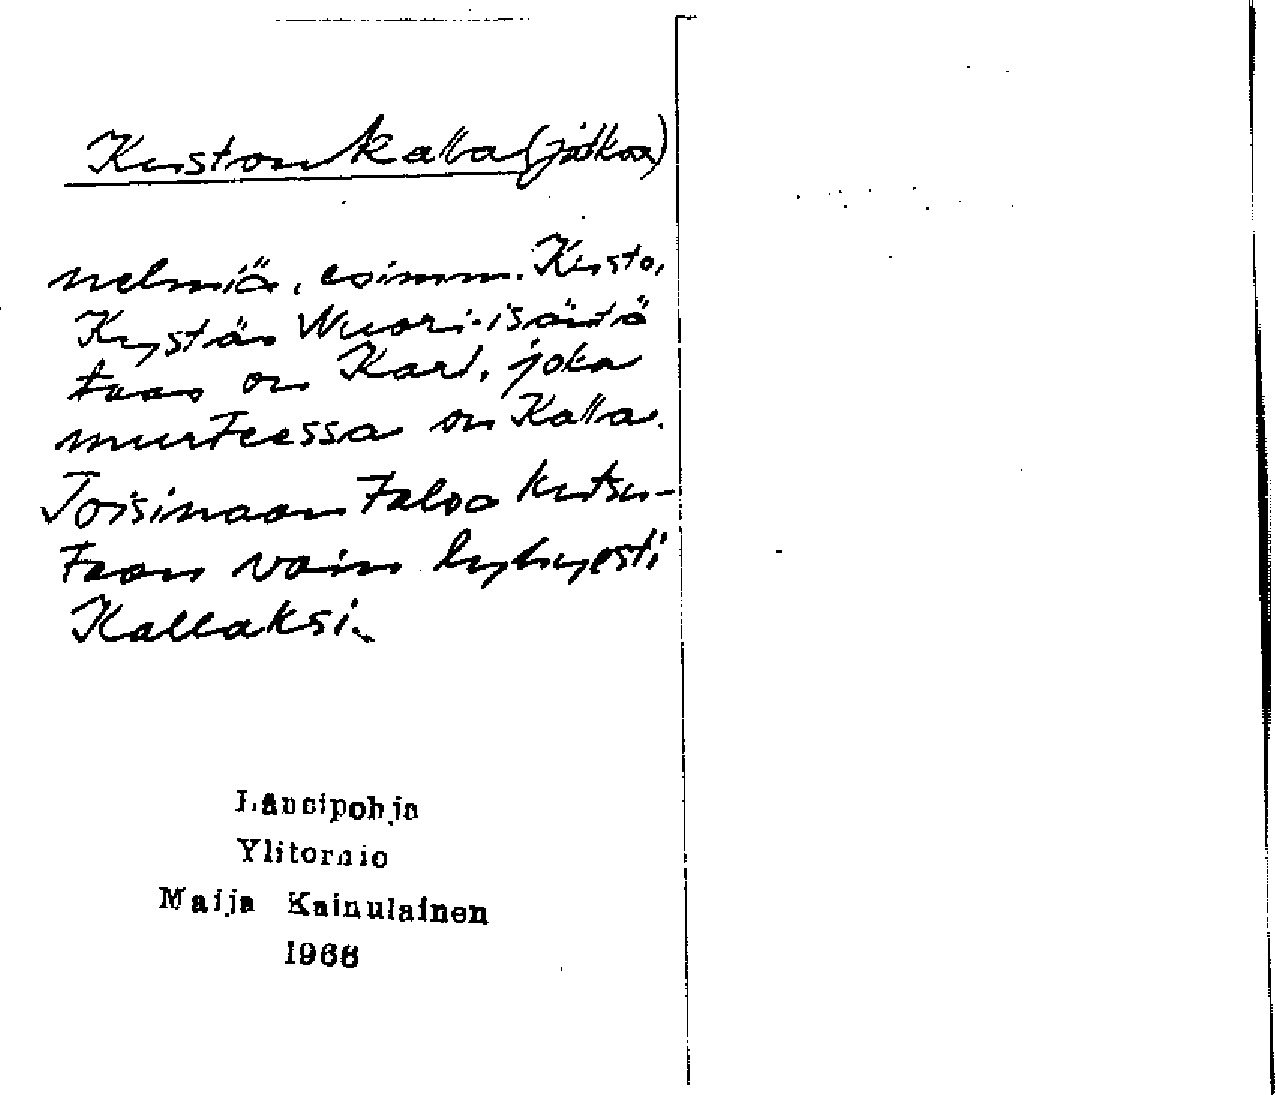 Kustonkalla (jatkoa)
nelmiä, esimm. Kusto,
Kystän Nuori-isäntä
taas on Karl, joka
murteessa on Kalla.
Toisinaan taloa kutsu-
taan vain lyhyesti
Kallaksi.
Länsipohja
Ylitornio
Maija Kainulainen
1966